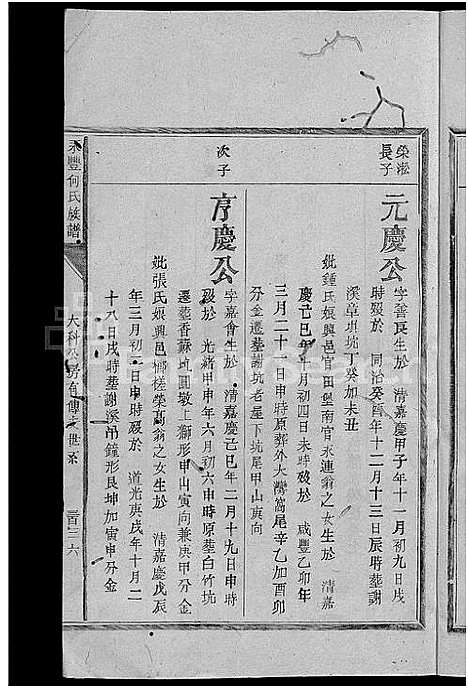 榮崧長子
元慶公
字善良生於 清嘉慶甲子年十一月初九日戌
時殁於 同治癸酉年十二月十三日辰時塟謝
溪章垻坑丁癸加未丑
妣鍾氏娘興邑官田堡南官永連翁之女生於 清嘉
慶己巳年 月初四日未時殁於 咸豐乙卯年
三月二十一日申時原葬外大灣窩尾辛乙加酉卯
分金遷塟謝坑老屋下坑尾甲山庚向
次子
序慶公
字嘉會生於 清嘉慶己巳年二月十九日申時
殁於 光緒甲申年六月初六申時原塟白竹坑
遷塟香蘇坑圓墩上獅形甲山寅向兼庚甲分金
妣張氏娘興邑榔槎榮高翁之女生於 清嘉慶戊辰
年三月初三日申時殁於 道光庚戌年十月二
十八日戌時塟謝溪吊鐘形艮坤加寅申分金
永豐何氏族譜
大科公房自傳之世系
三百三六